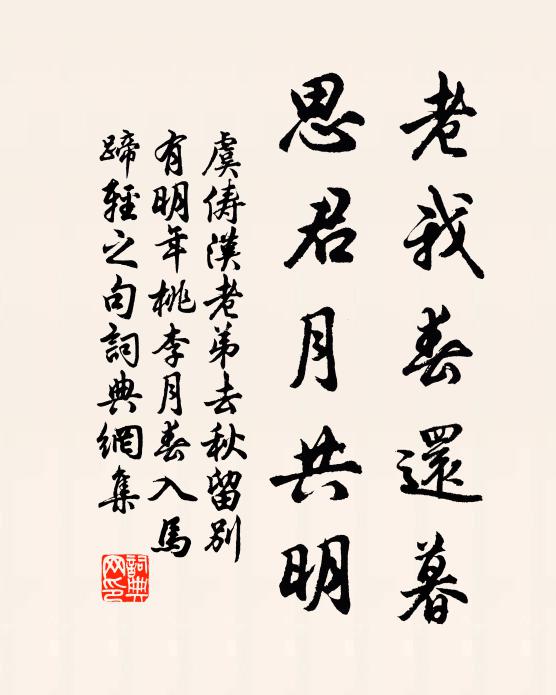 老我春還暮
思君月共明
虞儔漢老弟去秋留別
有明年桃李月春入馬
蹄輕之句詞典網集
詞典网印